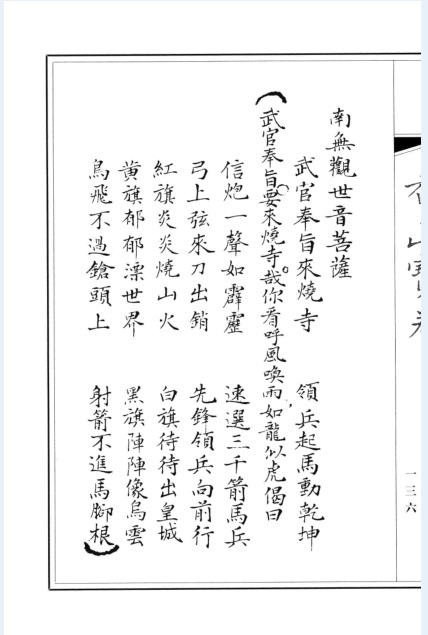 一三六
南無觀世音菩薩
武官奉旨來燒寺 領兵起馬動乾坤
(武官奉旨要來燒寺。哉你看呼風喚雨,如龍似虎偈曰
信炮一聲如霹靂 速選三千箭馬兵
弓上弦來刀出銷 先鋒領兵向前行
紅旗炎炎燒山火 白旗待待出皇城
黄旗郁郁漂世界 黑旗陣陣像烏雲
鳥飛不過鎗頭上 射箭不進馬腳根)